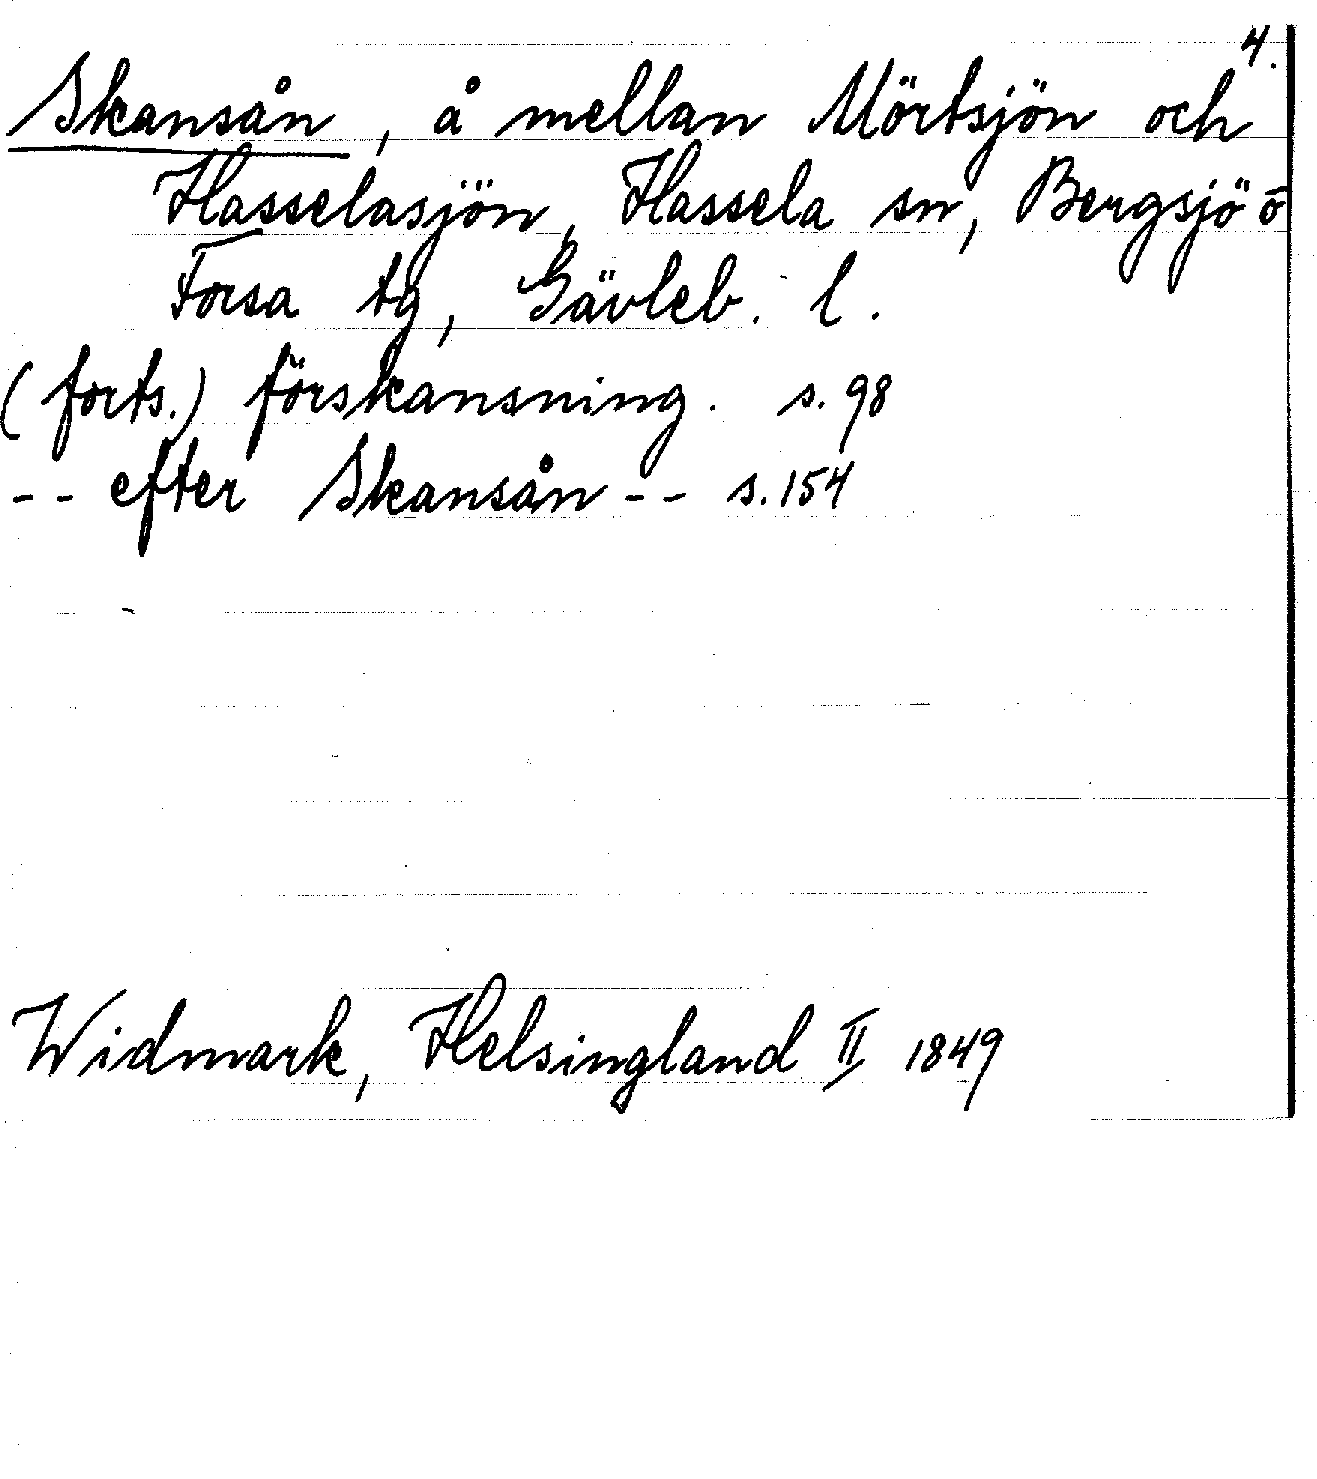 4.
Skansån, å mellan Mörtsjön och
Hasselasjön, Hassela sn, Bergsjö o
Forsa tg, Gävleb. l.
(forts.) förskansning. s. 98
-- efter Skansån -- s. 154
Widmark, Helsingland II 1849